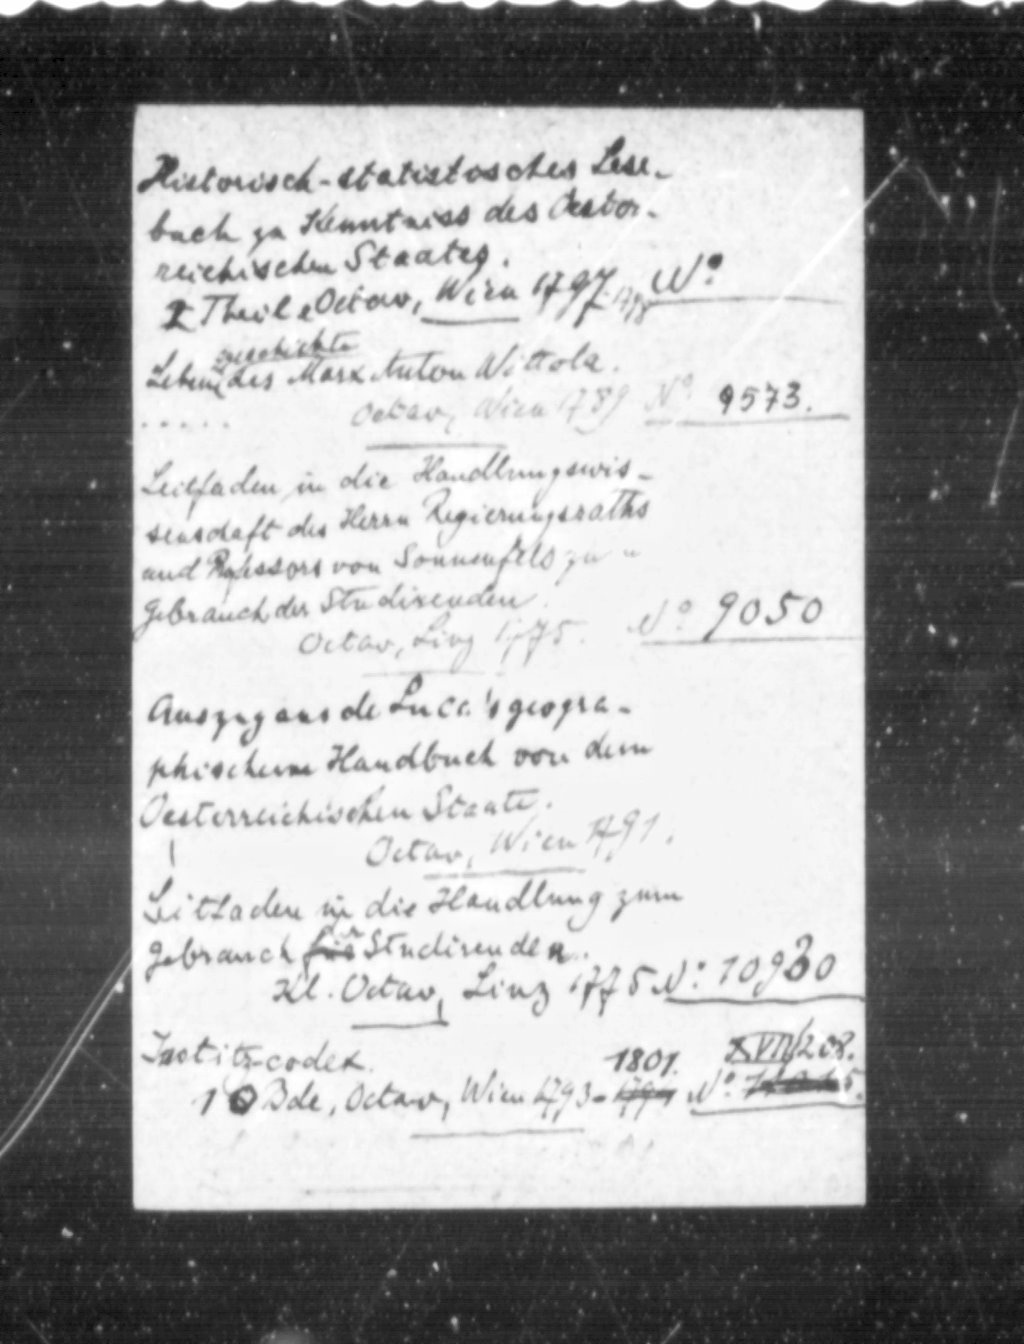 Historisch-statistisches Lese-
buch zu Kenntniss des Oester-
reichischen Staates.
2 Theile Octav, Wien 1797-1798 No
geschichte
Leben des Marx Anton Wittola.
..... Octav, Wien 1789 No 9573.
Leitfaden in die Handlungswis-
senschaft des Herrn Regierungsraths
und Professors von Sonnenfels zu
Gebrauch der Studirenden.
Octav, Linz 1775. No 9050
Auszug aus de Luca's geogra-
phischem Handbuch von dem
Oesterreichischen Staate.
Octav, Wien 1791.
Leitfaden in die Handlung zum
Gebrauch für Studirenden.
Kl. Octav, Linz 1775 No: 10930
Justitz-codex. 1801. XVII/208.
10 Bde, Octav, Wien 1793- 1794 No 5.